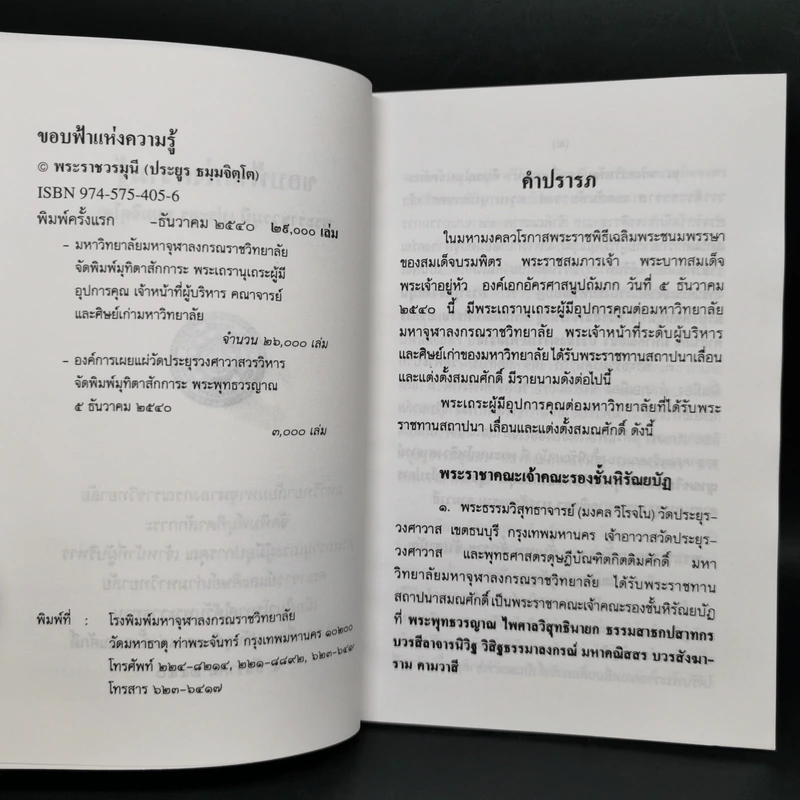 ขอบฟ้าแห่งความรู้
© พระราชวรมุนี (ประยูร ธมฺมจิตฺโต)
ISBN 974-575-405-6
พิมพ์ครั้งแรก –ธันวาคม ๒๕๔๐ ๒๙,๐๐๐ เล่ม
– มหาวิทยาลัยมหาจุฬาลงกรณราชวิทยาลัย
จัดพิมพ์มุทิตาสักการะ พระเถรานุเถระผู้มี
อุปการคุณ เจ้าหน้าที่ผู้บริหาร คณาจารย์
และศิษย์เก่ามหาวิทยาลัย
จำนวน ๒๖,๐๐๐ เล่ม
– องค์การเผยแผ่วัดประยุรวงศาวาสวรวิหาร
จัดพิมพ์มุทิตาสักการะ พระพุทธวรญาณ
๕ ธันวาคม ๒๕๔๐
๓,๐๐๐ เล่ม
พิมพ์ที่ : โรงพิมพ์มหาจุฬาลงกรณราชวิทยาลัย
วัดมหาธาตุ ท่าพระจันทร์ กรุงเทพมหานคร ๑๐๒๐๐
โทรศัพท์ ๒๒๔–๘๒๑๔, ๒๒๑–๘๘๙๒, ๖๒๓–๖๔๑๗
โทรสาร ๖๒๓–๖๔๑๗
คำปรารภ
ในมหามงคลวโรกาสพระราชพิธีเฉลิมพระชนมพรรษา
ของสมเด็จบรมพิตร พระราชสมภารเจ้า พระบาทสมเด็จ
พระเจ้าอยู่หัว องค์เอกอัครศาสนูปถัมภก วันที่ ๕ ธันวาคม
๒๕๔๐ นี้ มีพระเถรานุเถระผู้มีอุปการคุณต่อมหาวิทยาลัย
มหาจุฬาลงกรณราชวิทยาลัย พระเจ้าหน้าที่ระดับผู้บริหาร
และศิษย์เก่าของมหาวิทยาลัยได้รับพระราชทานสถาปนาเลื่อน
และแต่งตั้งสมณศักดิ์ มีรายนามดังต่อไปนี้
พระเถระผู้มีอุปการคุณต่อมหาวิทยาลัยที่ได้รับพระ
ราชทานสถาปนา เลื่อนและแต่งตั้งสมณศักดิ์ ดังนี้
พระราชาคณะเจ้าคณะรองชั้นหิรัณยบัฏ
๑. พระธรรมวิสุทธาจารย์ (มงคล วิโรจโน) วัดประยุร–
วงศาวาส เขตธนบุรี กรุงเทพมหานคร เจ้าอาวาสวัดประยุร–
วงศาวาส และพุทธศาสตรดุษฎีบัณฑิตกิตติมศักดิ์ มหา
วิทยาลัยมหาจุฬาลงกรณราชวิทยาลัย ได้รับพระราชทาน
สถาปนาสมณศักดิ์เป็นพระราชาคณะเจ้าคณะรองชั้นหิรัณยบัฏ
ที่ พระพุทธวรญาณ ไพศาลวิสุทธินายก ธรรมสาธกปสาทกร
บวรสีลาจารนิวิฐ วิสิฐธรรมาลงกรณ์ มหาคณิสสร บวรสังฆา–
ราม คามวาสี